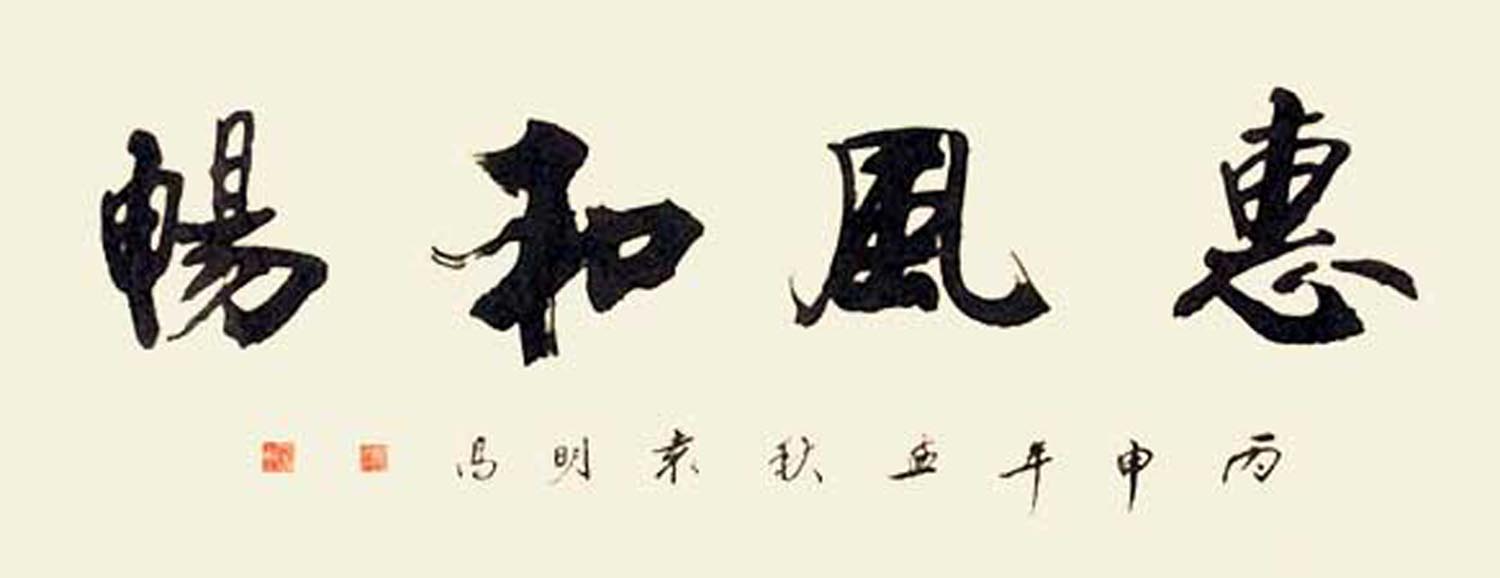 惠風和暢
丙申年孟秋袁明